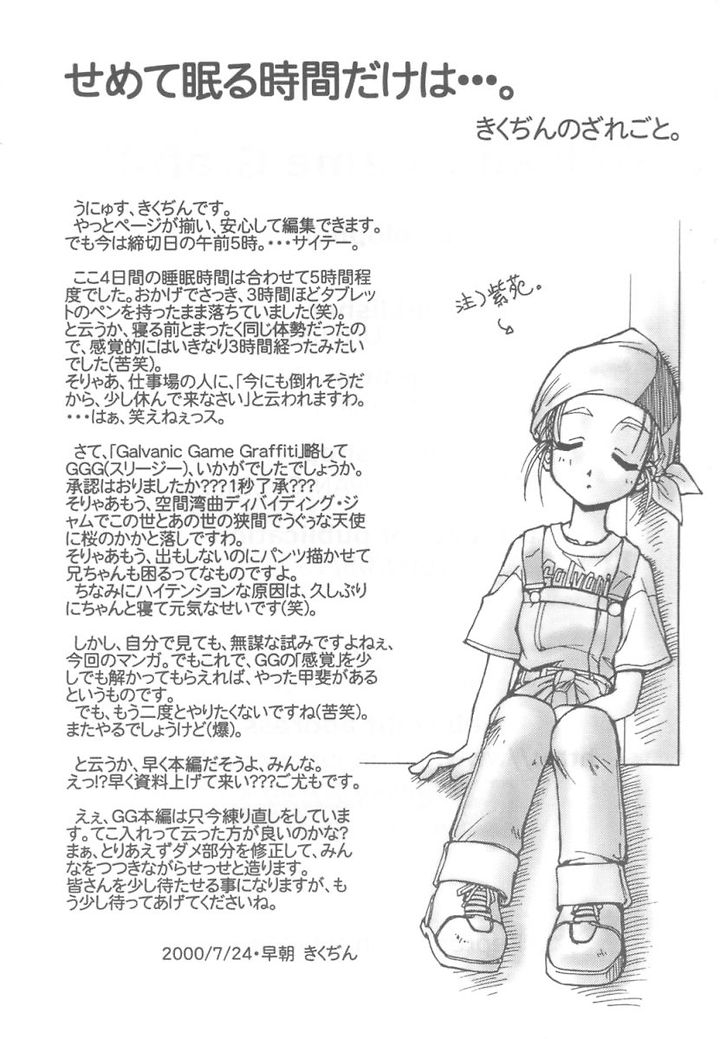 せめて眠る時間だけは･･･。
きくぢんのざれごと。
うにゅす、きくぢんです。
やっとページが揃い、安心して編集できます。
でも今は締切日の午前5時。･･･サイテー。
ここ4日間の睡眠時間は合わせて5時間程
度でした。おかげでさっき、3時間ほどタブレッ
トのペンを持ったまま落ちていました(笑)。
と云うか、寝る前とまったく同じ体勢だったの
で、感覚的にはいきなり3時間経ったみたい
でした(苦笑)。
そりゃあ、仕事場の人に、「今にも倒れそうだ
から、少し休んで来なさい」と云われますわ。
･･･はぁ、笑えねぇっス。
さて、「Galvanic Game Graffiti」略して
GGG(スリージー)、いかがでしたでしょうか。
承認はおりましたか???1秒了承???
そりゃあもう、空間湾曲ディバイディング・ジ
ャムでこの世とあの世の狭間でうぐぅな天使
に桜のかかと落しですわ。
そりゃあもう、出もしないのにパンツ描かせて
兄ちゃんも困るってなものですよ。
ちなみにハイテンションな原因は、久しぶり
にちゃんと寝て元気なせいです(笑)。
しかし、自分で見ても、無謀な試みですよねぇ、
今回のマンガ。でもこれで、GGの「感覚」を少
しでも解かってもらえれば、やった甲斐がある
というものです。
でも、もう二度とやりたくないですね(苦笑)。
またやるでしょうけど(爆)。
と云うか、早く本編だそうよ、みんな。
えっ!?早く資料上げて来い???ご尤もです。
えぇ、GG本編は只今練り直しをしていま
す。てこ入れって云った方が良いのかな?
まぁ、とりあえずダメ部分を修正して、みん
なをつつきながらせっせと造ります。
皆さんを少し待たせる事になりますが、も
う少し待ってあげてくださいね。
2000/7/24・早朝 きくぢん
注)紫苑。
Galvani